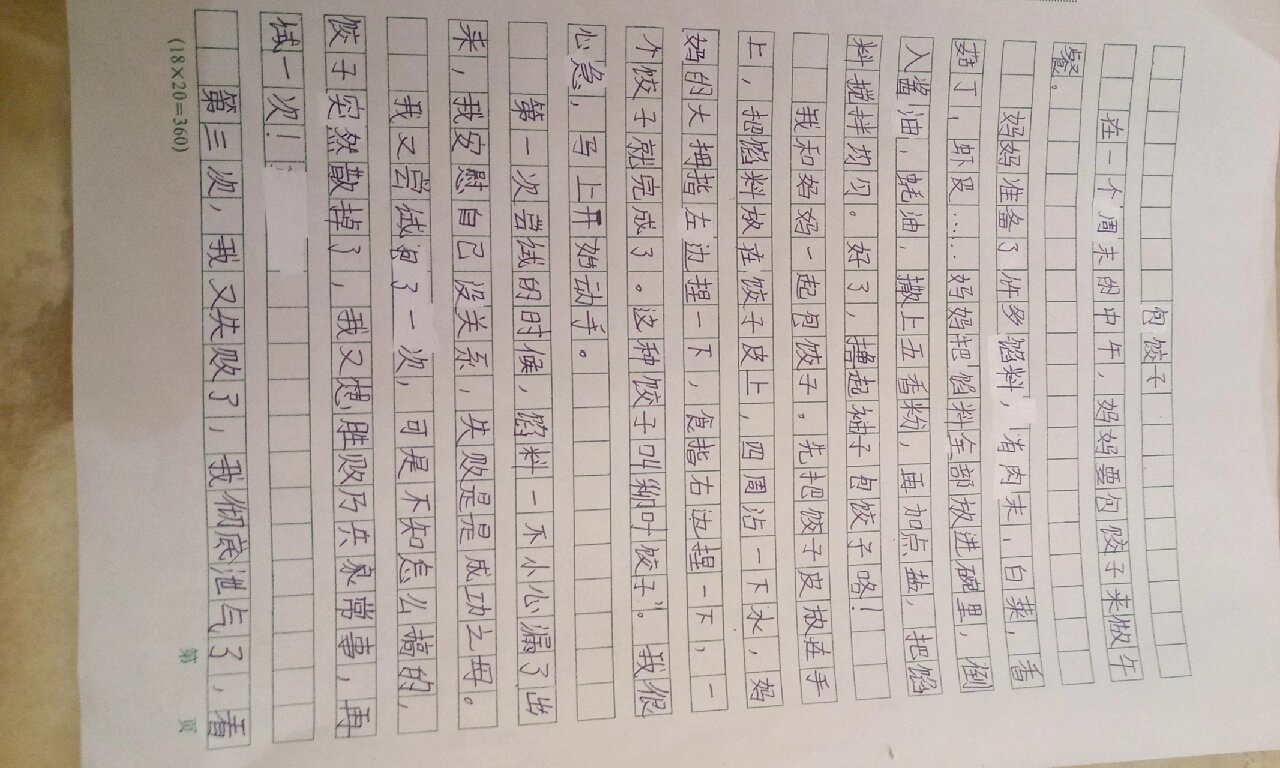 包饺子
在一个周末的中午，妈妈要包饺子来做午
餐。
妈妈准备了许多馅料，有肉末，白菜，香
菇丁，虾皮……妈妈把馅料全部放进碗里，倒
入酱油，蚝油，撒上五香粉，再加点盐，把馅
料搅拌均匀。好了，撸起袖子包饺子咯！
我和妈妈一起包饺子。先把饺子皮放在手
上，把馅料放在饺子皮上，四周沾一下水，妈
妈的大拇指左边捏一下，食指右边捏一下，一
个饺子就完成了。这种饺子叫“柳叶饺子”。我很
心急，马上开始动手。
第一次尝试的时候，馅料一不小心漏了出
来，我安慰自己没关系，失败是是成功之母。
我又尝试了一次，可是不知怎么搞的，
饺子突然散掉了，我又想，胜败乃兵家常事，再
试一次！
第三次，我又失败了，我彻底泄气了，看
(18×20=360)
第 页